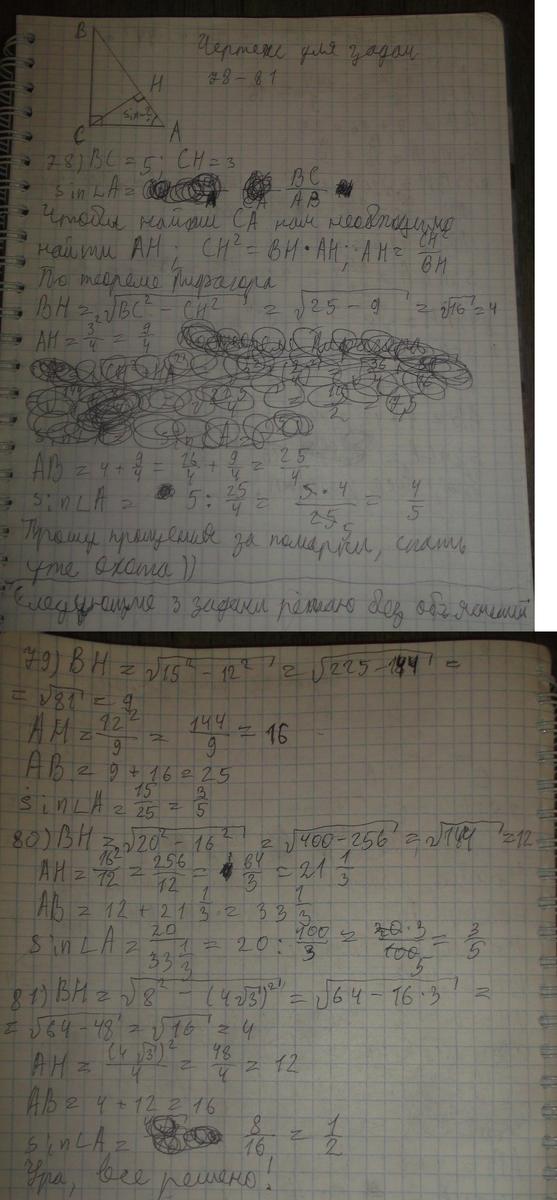 B
Чертёж для задач
78 – 81
H
sin-?
C
A
78) BC = 5; CH = 3
sin∠A = BC/AB
Чтобы найти CA нам необходимо
найти AH; CH² = BH · AH; AH = CH²/BH
По теореме Пифагора
BH = √(BC² – CH²) = √(25 – 9) = √16 = 4
AH = 3²/4 = 9/4
AB = 4 + 9/4 = 16/4 + 9/4 = 25/4
sin∠A = 5 : 25/4 = 5·4/25 5 = 4/5
Прошу прощения за помарки, спать
уже охота))
Следующие 3 задачи решаю без объяснений
79) BH = √(15² – 12²) = √(225 – 144) =
= √81 = 9
AH = 12²/9 = 144/9 = 16
AB = 9 + 16 = 25
sin∠A = 15/25 = 3/5
80) BH = √(20² – 16²) = √(400 – 256) = √144 = 12
AH = 16²/12 = 256/12 = 64/3 = 21 1/3
AB = 12 + 21 1/3 = 33 1/3
sin∠A = 20/33 1/3 = 20 : 100/3 = 20·3/100 5 = 3/5
81) BH = √(8² – (4√3)²) = √(64 – 16·3) =
= √(64 – 48) = √16 = 4
AH = (4√3)²/4 = 48/4 = 12
AB = 4 + 12 = 16
sin∠A = 8/16 = 1/2
Ура, все решено!